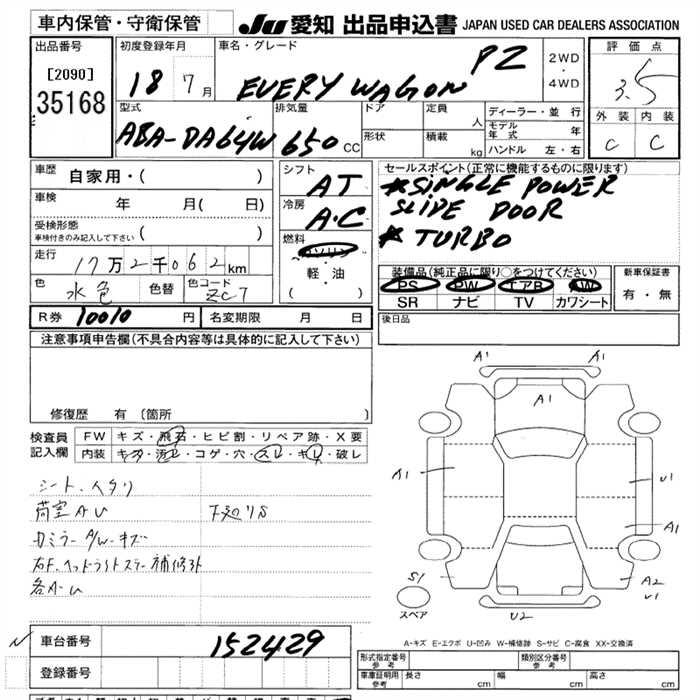 車内保管・守衛保管
JU 愛知 出品申込書 JAPAN USED CAR DEALERS ASSOCIATION
出品番号 初度登録年月 車名・グレード 評価点
[2090]
35168
18 7月 EVERY WAGON PZ 2WD・4WD 3.5
型式 排気量 ドア 定員 人 ディーラー・並行 外装 内装
ABA-DA64W 650cc 形状 積載 kg モデル年式 年 C C
ハンドル 左・右
車歴 自家用・( ) シフト AT セールスポイント(正常に機能するものに限ります)
*SINGLE POWER
SLIDE DOOR
*TURBO
車検 年 月( 日) 冷房 A・C
受検形態
車検付きのみ記入して下さい ( ) 燃料 ガソリン
軽・油
( )
走行 17万2千062km
色 水色 色替 色コード ZC7
装備品(純正品に限り○をつけてください) 新車保証書
PS PW エアB AW
SR ナビ TV カワシート 有・無
R券 10010円 名変期限 月 日 後日品
注意事項申告欄(不具合内容等は具体的に記入して下さい)
修復歴 有 (箇所 )
検査員記入欄 FW キズ・飛石・ヒビ割・リペア跡・X要
内装 キズ・汚レ・コゲ・穴・スレ・キレ・破レ
シート、
荷室AU 下廻リS
カミラーA/W・キズ
右F.ヘッドライトステー補修跡
各A・U
A1 A1
A1
A1 U1
A1
S1 A2
U1
スペア U2
A-キズ E-エクボ U-凹み W-補修跡 S-サビ C-腐食 XX-交換済
車台番号 152429
登録番号
形式指定番号 参考 類別区分番号 参考
車庫証明用 参考 長さ cm 幅 cm 高さ cm